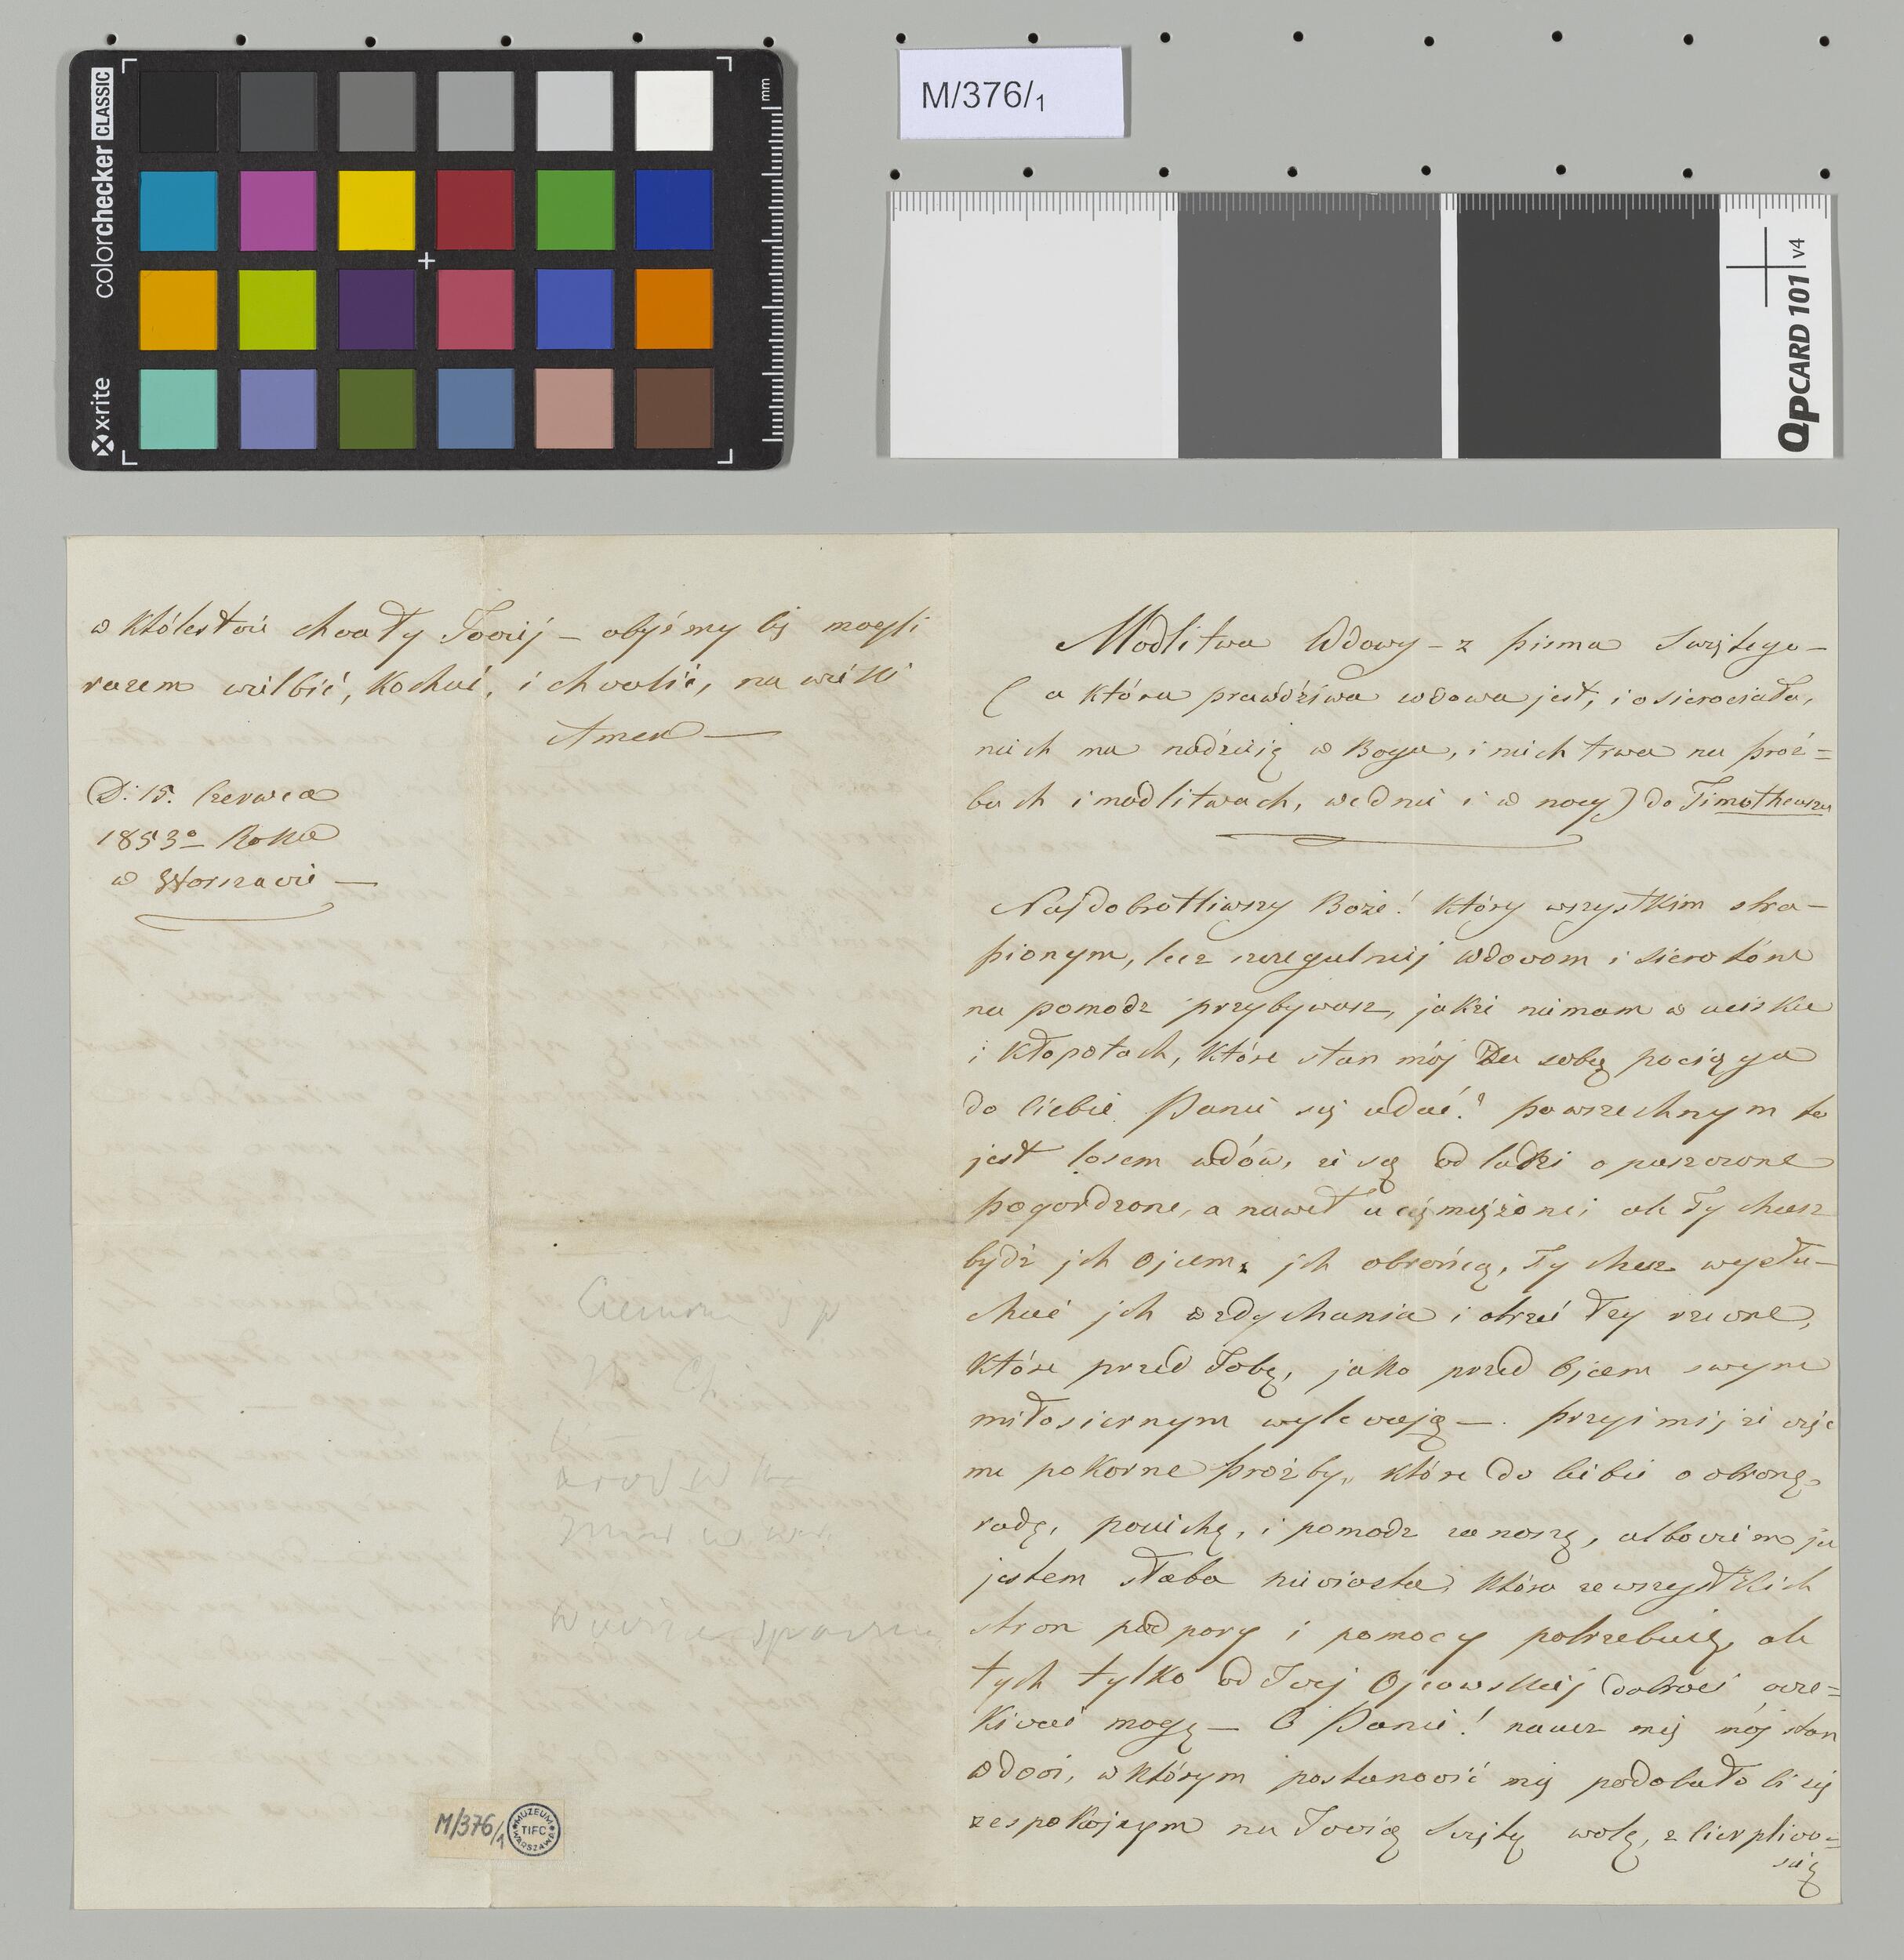 colorchecker CLASSIC
x-rite
mm
M/376/1
QPCARD 101 v4
w Królestwie chwały Twoiéj – obyśmy Cię mogli
razem wielbić, Kochać, i chwalić, na wieki
Amen —
D: 15. Czerwca
1853º Roku
w Warszawie —
M/376/1
MUZEUM TIFC WARSZAWA
Modlitwa Wdowy – z pisma Swiętego –
( a która prawdziwa wdowa jest, i osierociała,
niech ma nadzieię w Bogu, i niech trwa na proź=
bach i modlitwach, wednie i w nocy) do Timotheusza
Najdobrotliwszy Boże! który wszystkim stra–
pionym, lecz szczegulniej Wdowom i sierotóm
na pomodz przybywasz, jakże niemam w ucisku
i kłopotach, które stan mój za sobą pociąga
do Ciebie Panie się udać? powszechnym to
jest losem wdów, że są od ludzi opuszczone
pogardzone, a nawet uciemiężone; ale Ty chcesz
bydź jch Ojcem, jch obrońcą, Ty chcesz wysłu–
chać jch wzdychania i otrzeć łzy rzewne,
które przed Tobą, jako przed Ojcem swym
miłosiernym wylewają —. przyimijże więc
me pokorne proźby, które do Ciebie o obronę,
radę, pociechę, i pomodz zanoszę, albowiem ja
jestem słaba niewiasta, która ze wszystkich
stron podpory i pomocy potrzebuię, ale
tych tylko od Twej Ojcowskiej dobroci ocze=
kiwać mogę — O Panie! naucz mię mój stan
wdowi, w którym postanowić mię podobało Ci się
zespokojnym na Twoią Swiętą wolę, z cierpliwo=
scią